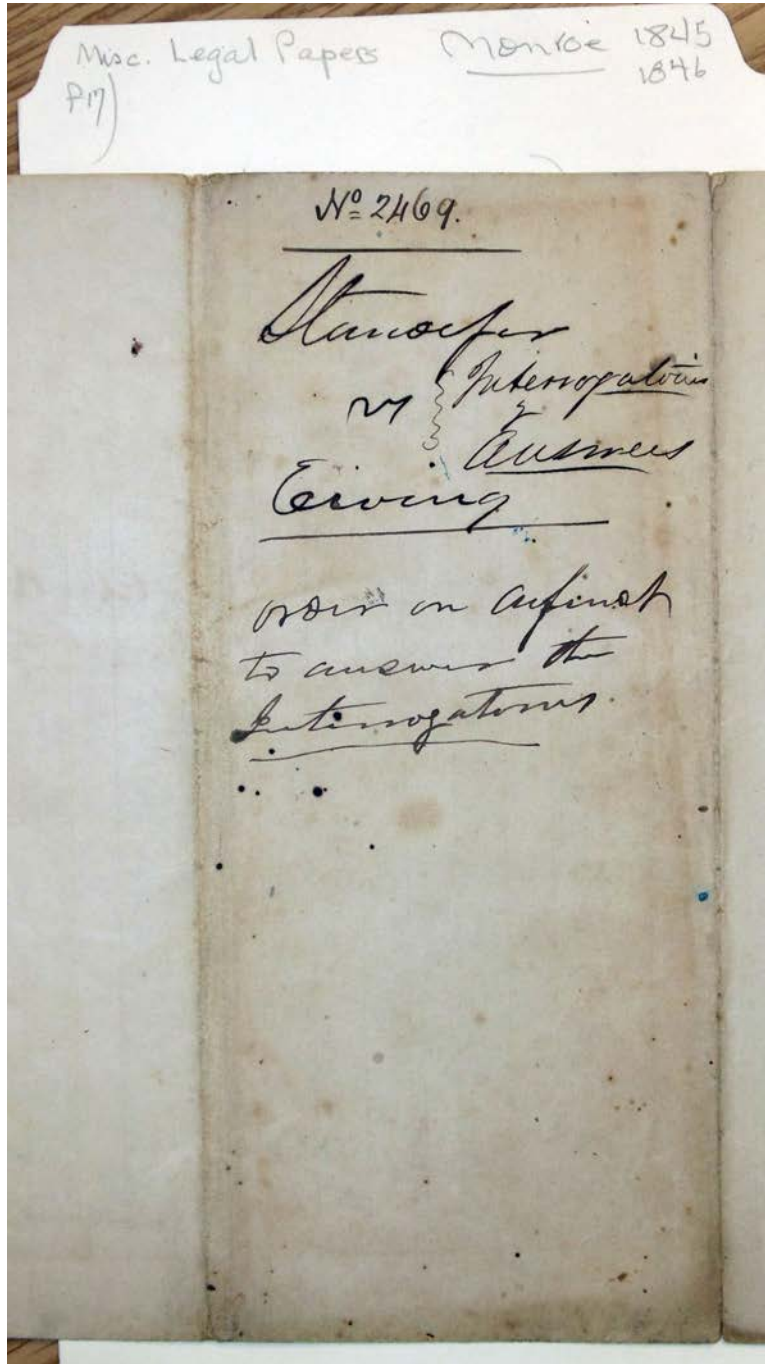 Misc. Legal Papers Monroe 1845
1846
No 2469.
Standefer
vs Interrogatories
&
Answers
Ewing
order on
to answer the
Interrogatories.